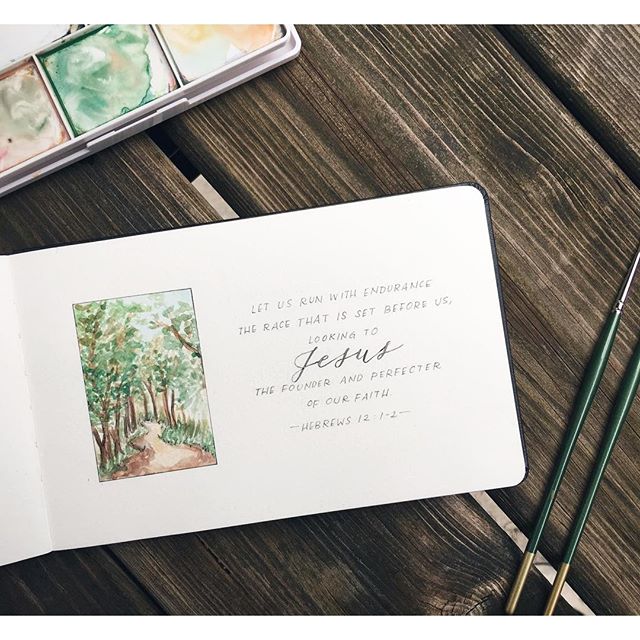 LET US RUN WITH ENDURANCE
THE RACE THAT IS SET BEFORE US,
LOOKING TO
Jesus
THE FOUNDER AND PERFECTER
OF OUR FAITH.
—HEBREWS 12:1-2—